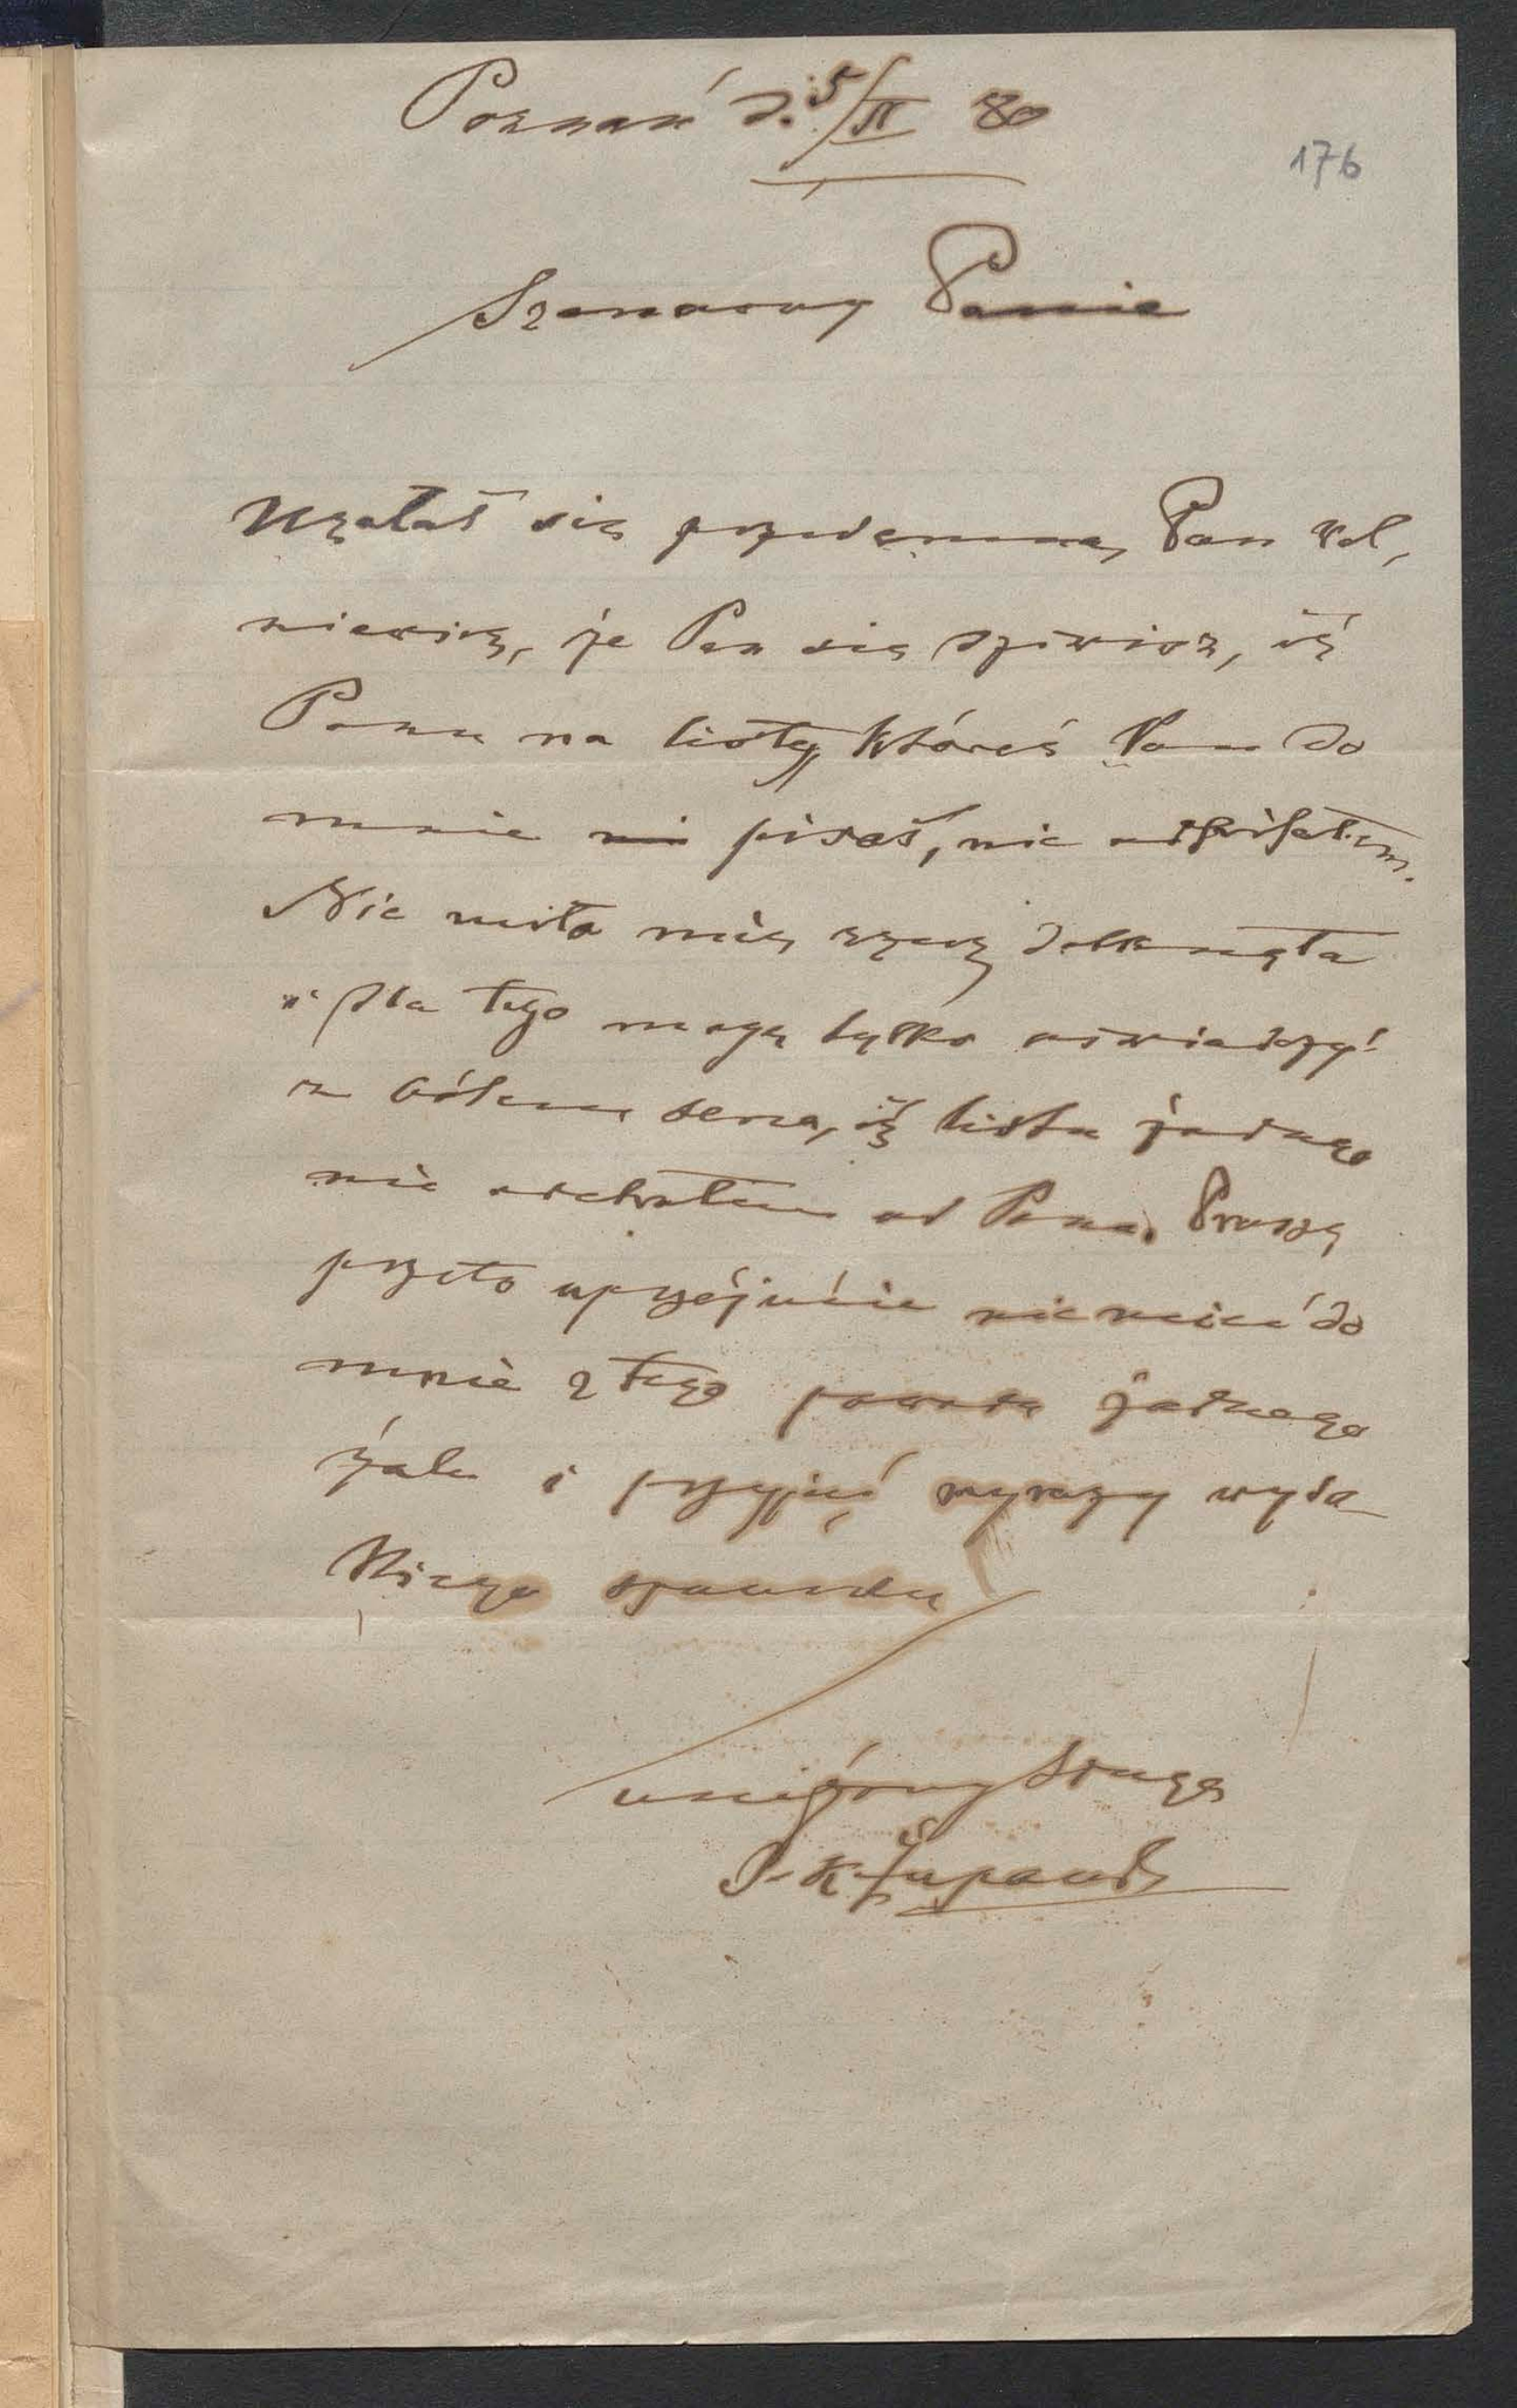 Poznań d. 5/II 80
176
Szanowny Panie
Użalał się przedemną Pan
że Pan się dziwisz, iż
Panu na listy, któreś Pan do
mnie pisał, nie odpisałem.
Nie miło mię rzecz dotknęła
i dla tego mogę tylko oświadczyć
z bólem serca, iż listu żadnego
nie odebrałem od Pana. Proszę
przeto uprzejmie nie mieć do
mnie z tego powodu żadnego
żalu i przyjąć wyrazy wyso
kiego szacunku
uniżony sługa
J. K. Żupański